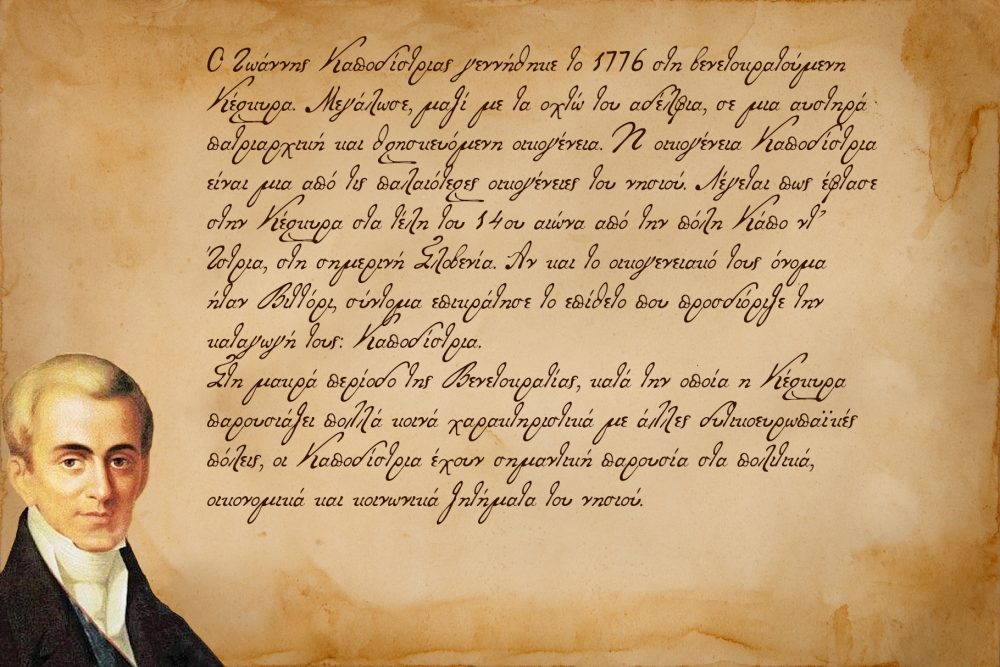 Ο Ιωάννης Καποδίστριας γεννήθηκε το 1776 στη βενετοκρατούμενη
Κέρκυρα. Μεγάλωσε, μαζί με τα οχτώ του αδέλφια, σε μια αυστηρά
πατριαρχική και θρησκευόμενη οικογένεια. Η οικογένεια Καποδίστρια
είναι μια από τις παλαιότερες οικογένειες του νησιού. Λέγεται πως έφτασε
στην Κέρκυρα στα τέλη του 14ου αιώνα από την πόλη Κάπο ντ’
Ίστρια, στη σημερινή Σλοβενία. Αν και το οικογενειακό τους όνομα
ήταν Βιττόρι, σύντομα επικράτησε το επίθετο που προσδιόριζε την
καταγωγή τους: Καποδίστρια.
Στη μακρά περίοδο της Βενετοκρατίας, κατά την οποία η Κέρκυρα
παρουσιάζει πολλά κοινά χαρακτηριστικά με άλλες δυτικοευρωπαϊκές
πόλεις, οι Καποδίστρια έχουν σημαντική παρουσία στα πολιτικά,
οικονομικά και κοινωνικά ζητήματα του νησιού.